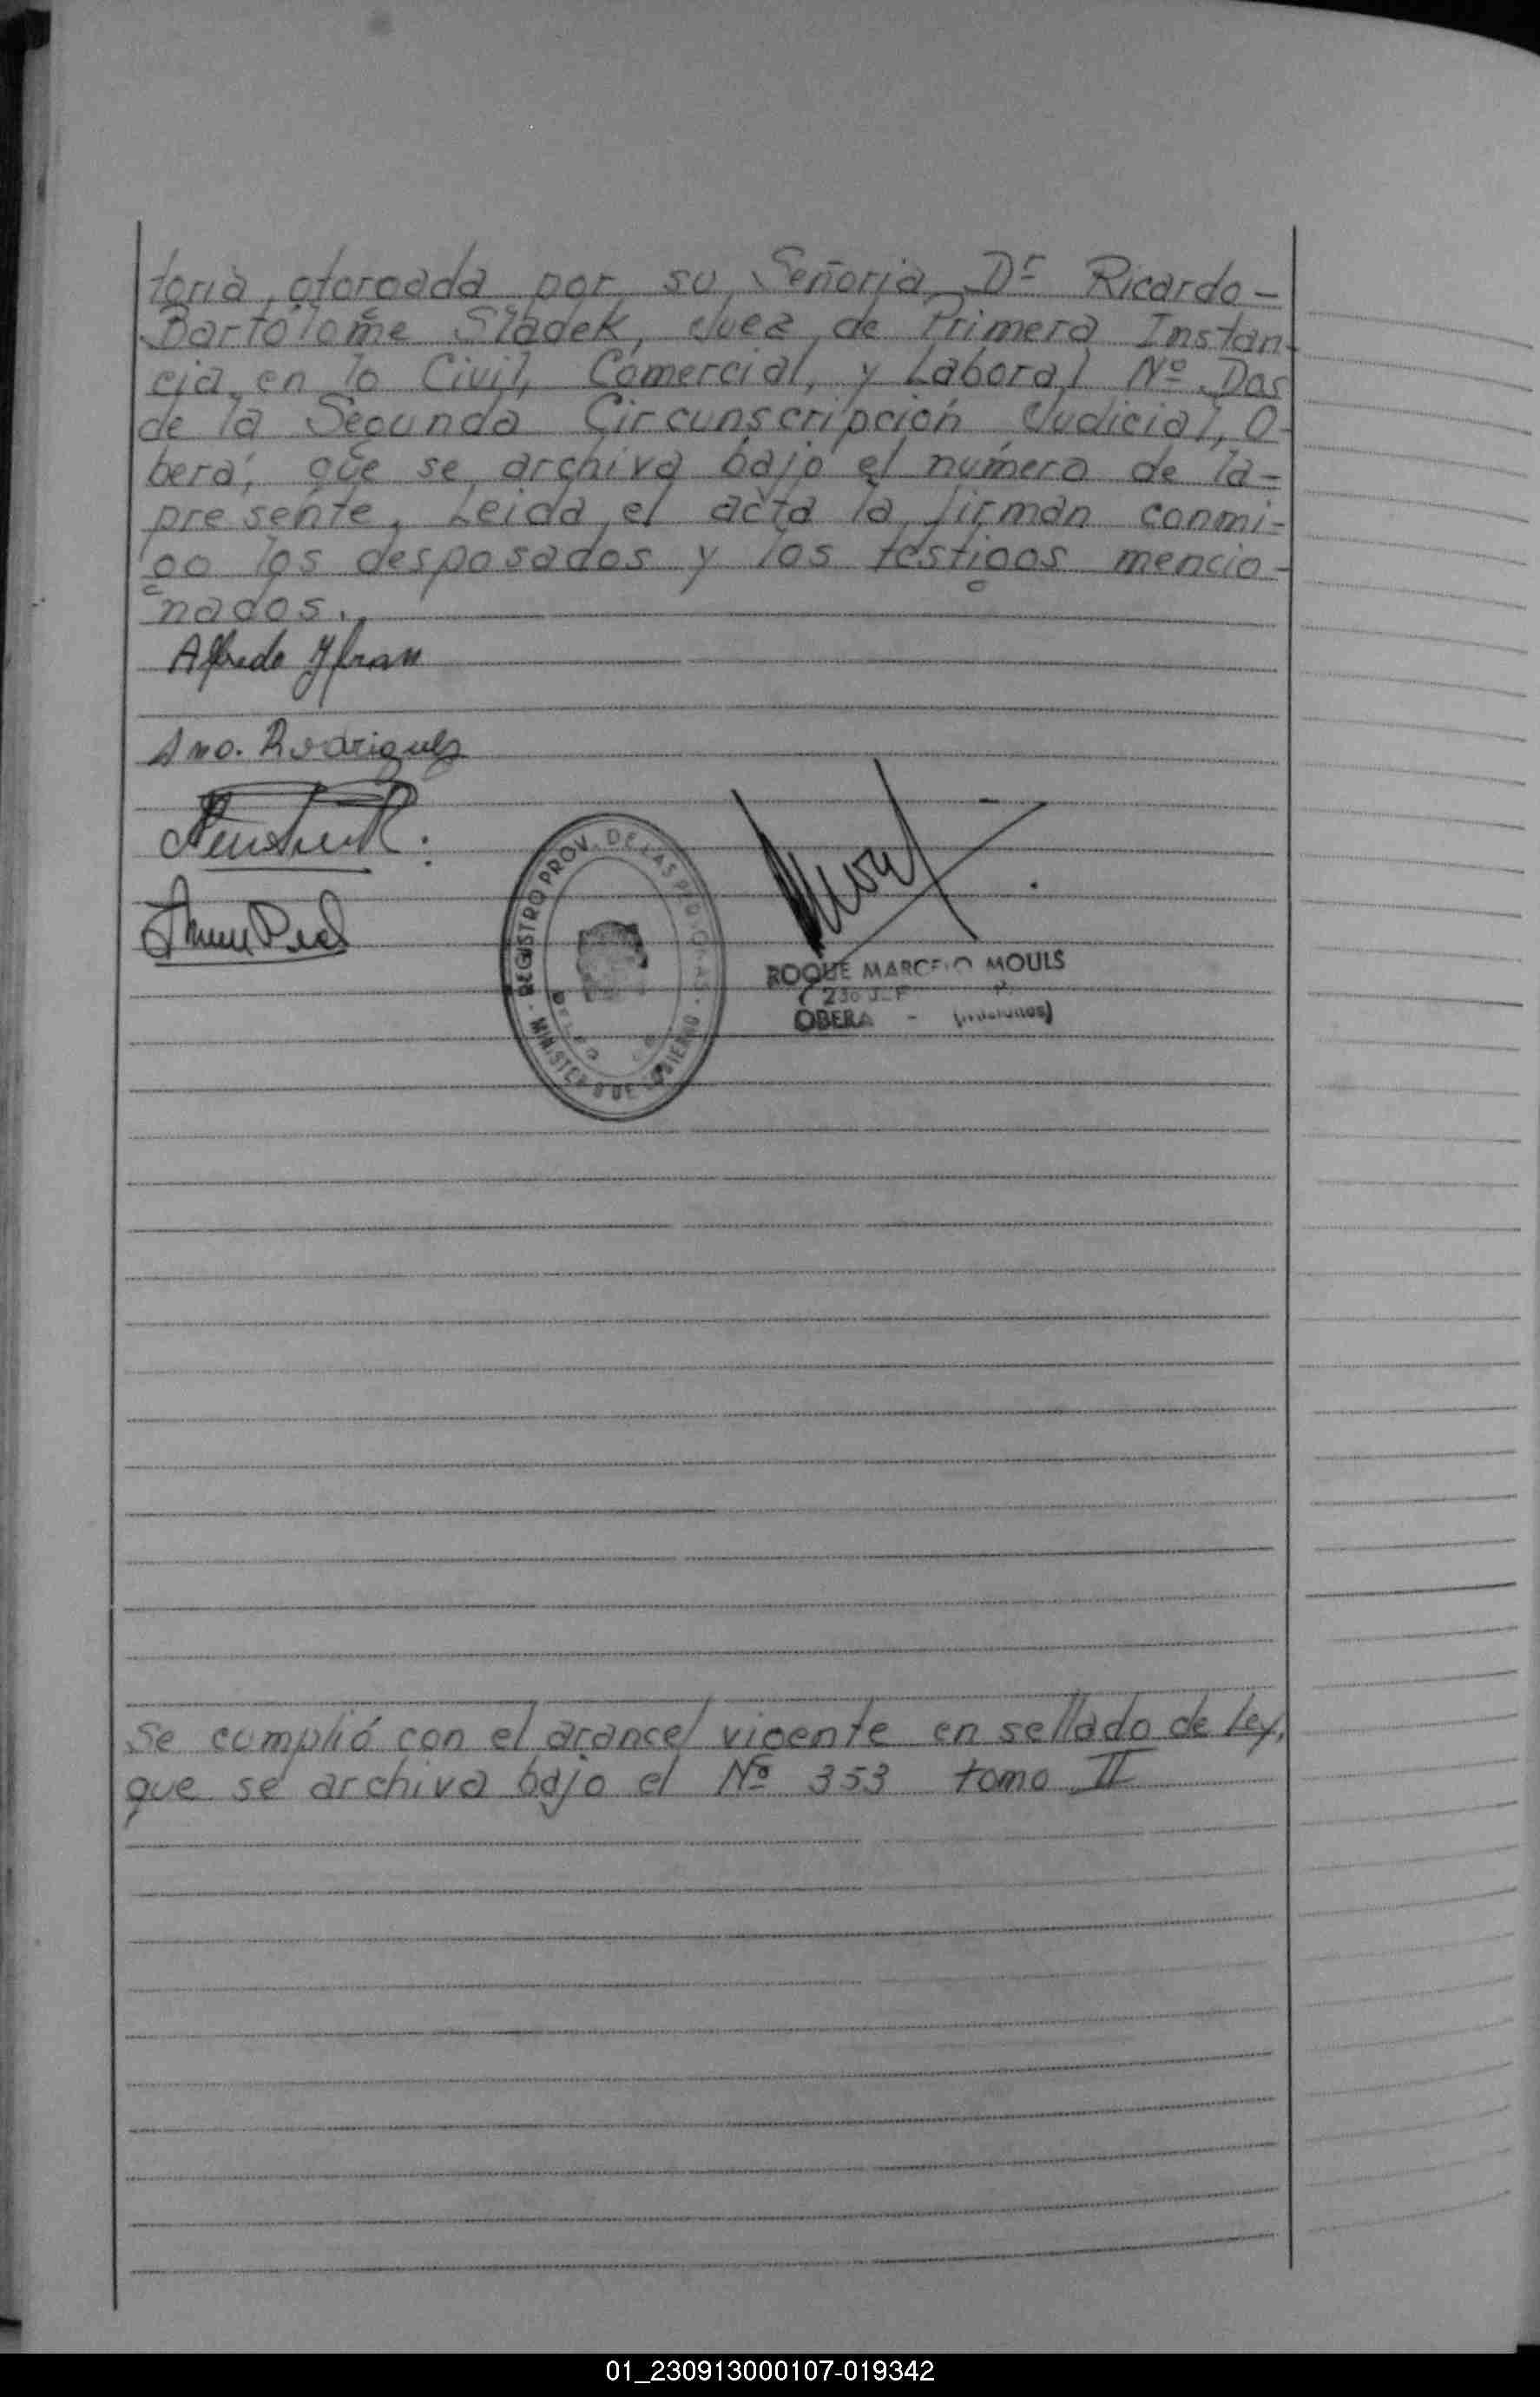 toria, otorgada por su Señoria, Dr Ricardo-
Bartolomé Sladek, Juez de Primera Instan-
cia en lo Civil, Comercial, y Laboral Nº Dos
de la Segunda Circunscripción Judicial, O-
berá; que se archiva bajo el número de la-
presente. Leida el acta la firman conmi-
go los desposados y los testigos mencio-
nados.
Alfredo Yfran
Ano. Rodriguez
REGISTRO PROV. DE LAS PERSONAS
MINISTERIO DE GOBIERNO
ROQUE MARCELO MOULS
OBERA - (Misiones)
Se cumplió con el arancel vigente en sellado de Ley,
que se archiva bajo el Nº 353 tomo II
01_230913000107-019342